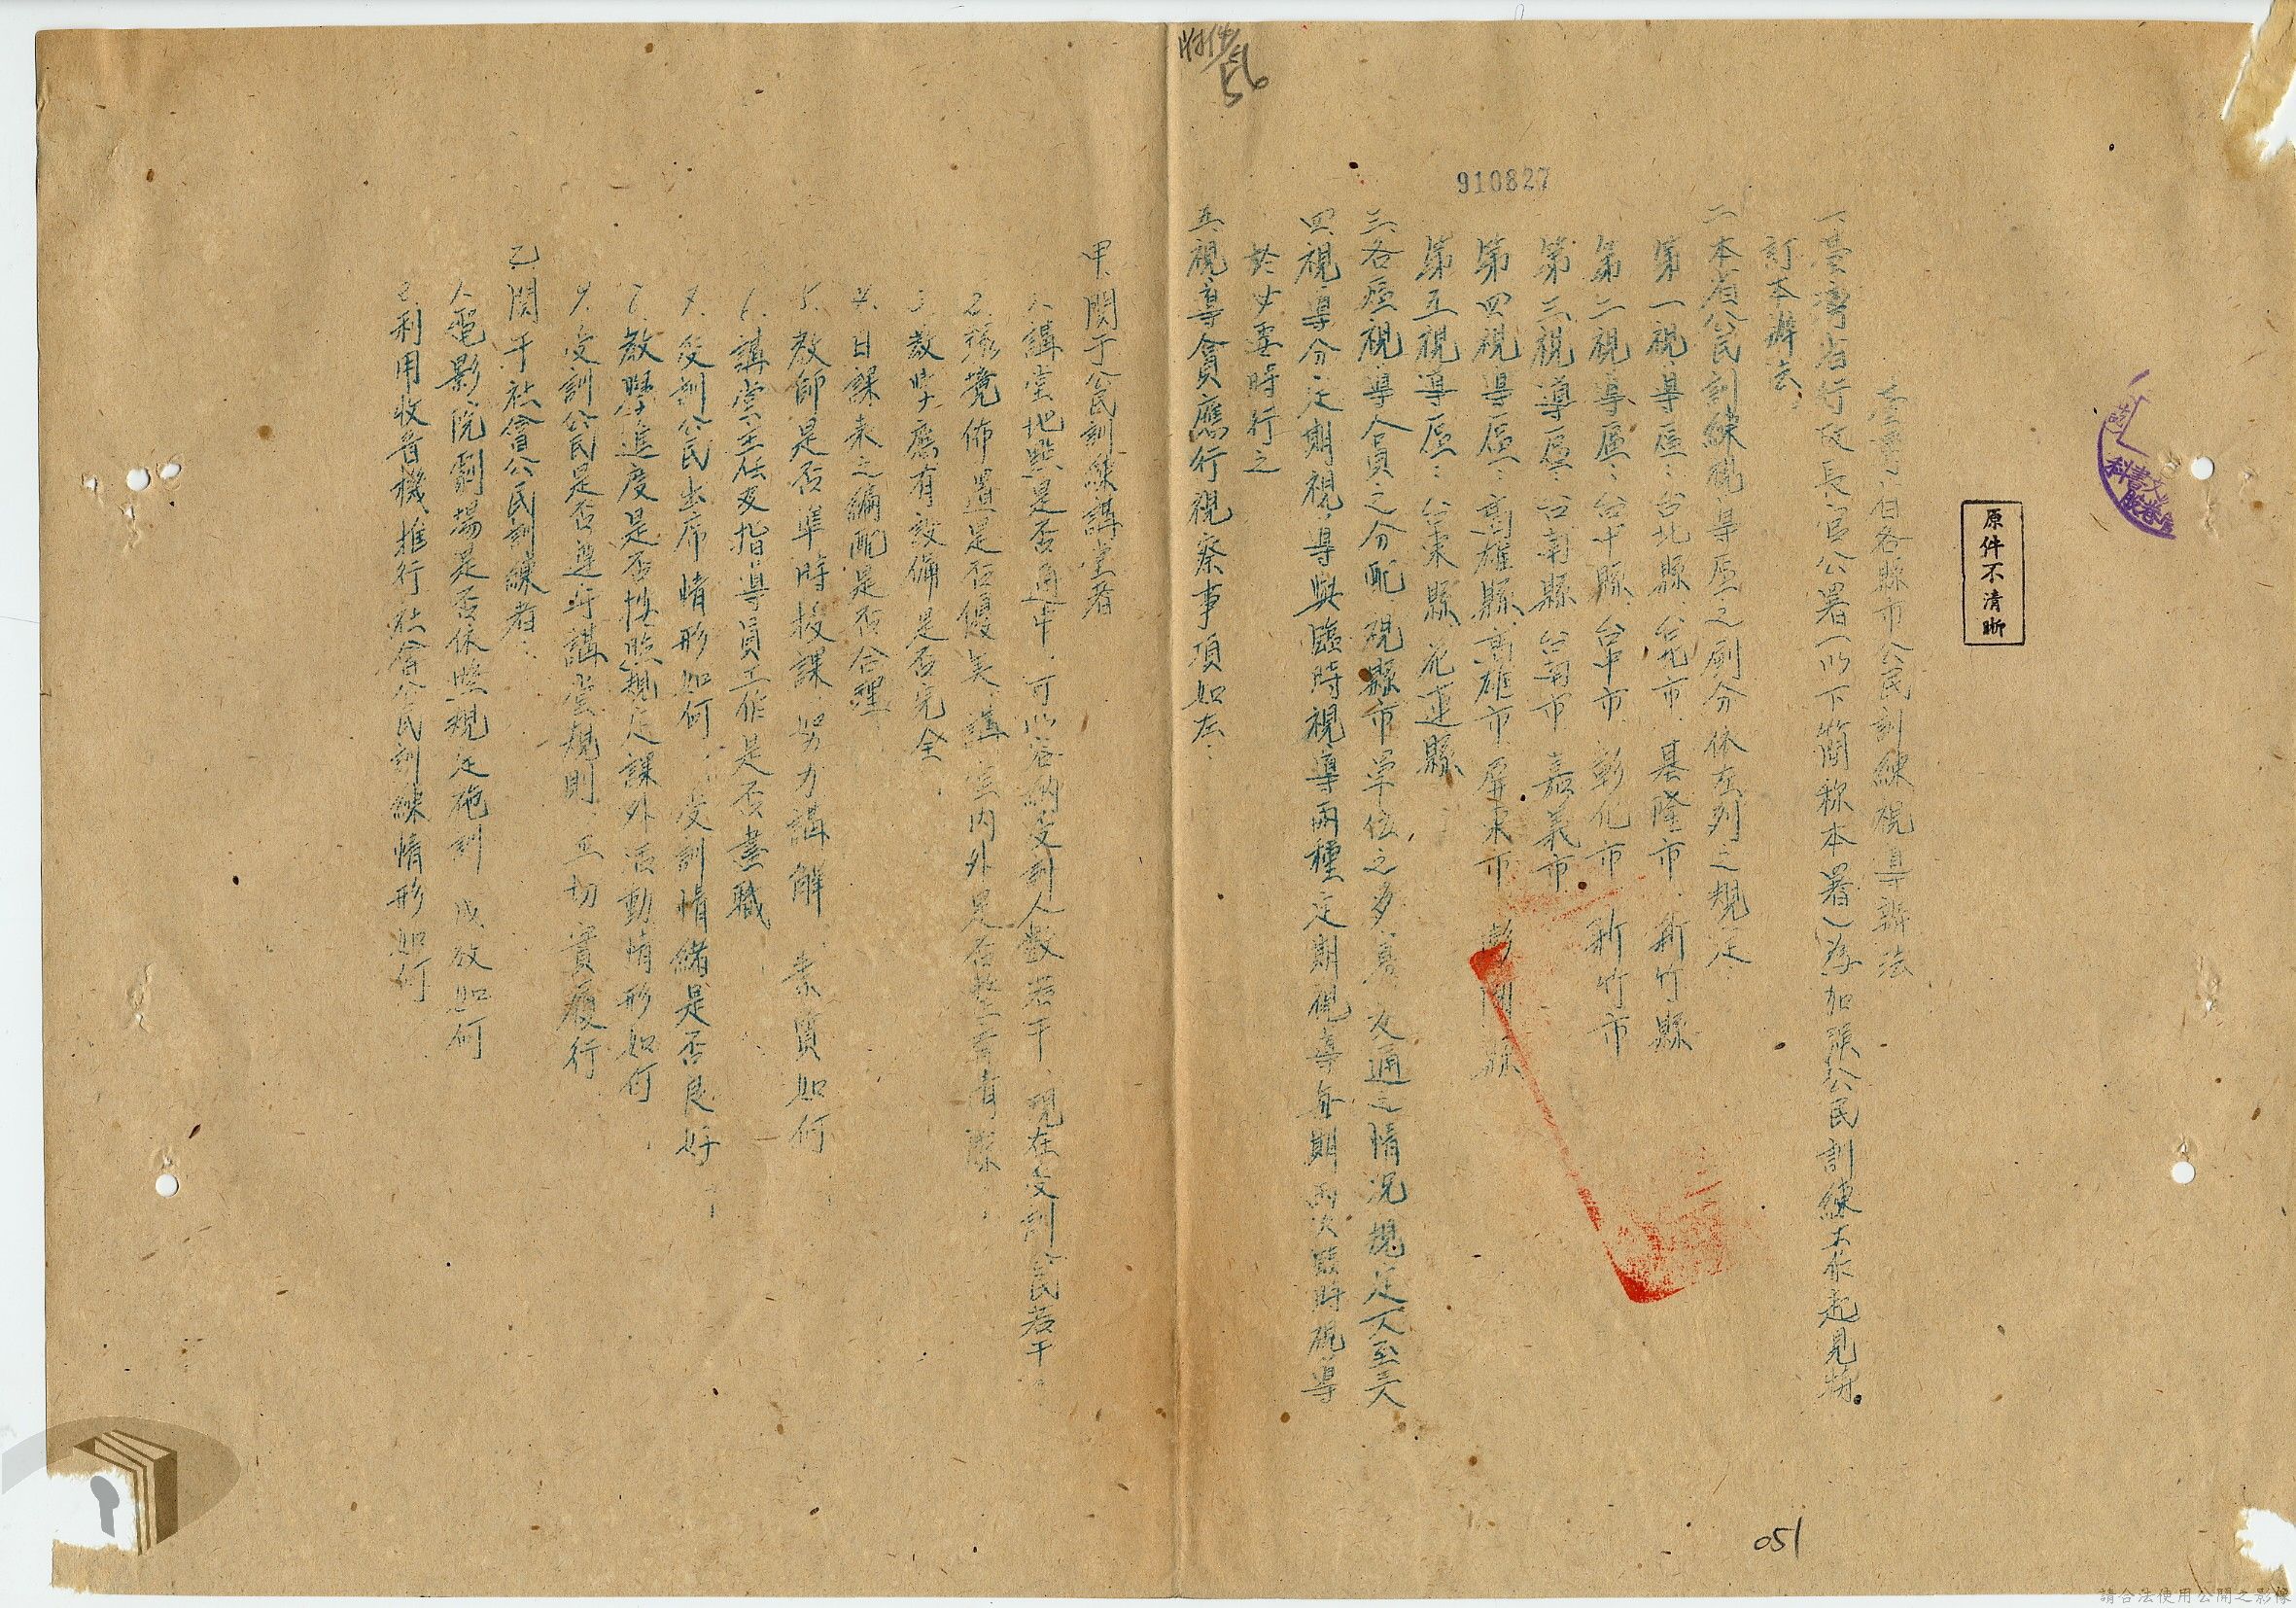 臺灣省各縣市公民訓練視導辦法
一、臺灣省行政長官公署(以下簡称本署)為加强公民訓練工作起見特
訂本辦法
二、本省公民訓練視導區之劃分依左列之規定
第一視導區：台北縣、台北市、基隆市、新竹縣
第二視導區：台中縣、台中市、彰化市、新竹市
第三視導區：台南縣、台南市、嘉義市
第四視導區：高雄縣、高雄市、屏東市、澎湖縣
第五視導區：台東縣、花蓮縣
三、各區視導人員之分配視縣市單位之多寡及交通之情況規定一人至三人
四、視導分定期視導與臨時視導兩種定期視導每期兩次臨時視導
於必要時行之
五、視導會員應行視察事項如左：
甲、関于公民訓練講堂者
1、講堂地點是否適中、可以容納受訓人數若干、現在受訓公民若干
2、環境佈置是否優美、講室內外是否整齊清潔
3、教學應有設備是否完全
4、日課表之編配是否合理
5、教師是否準時授課、努力講解、素質如何
6、講堂主任及指導員工作是否盡職
7、受訓公民出席情形如何、受訓情緒是否良好
8、教學進度是否按照規定課外活動情形如何
9、受訓公民是否遵守講堂規則、並切實履行
乙、関于社會公民訓練者：
1、電影院劇場是否依照規定施訓 成效如何
2、利用收音機推行社會公民訓練情形如何
附件
56
910827
原件不清晰
051
請合法使用公開之影像